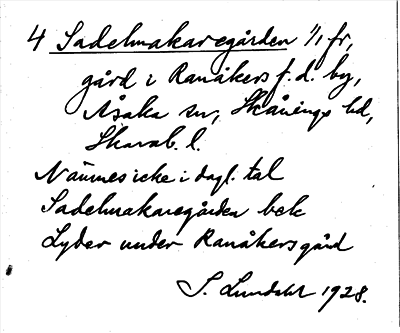 4 Sadelmakaregården 1/1 fr,
gård i Ranåkers f. d. by,
Åsaka sn, Skånings hd,
Skarab. l.
Nämnes icke i dagl. tal
Sadelmakaregården bek
Lyder under Ranåkersgård
S. Lundahl 1928.